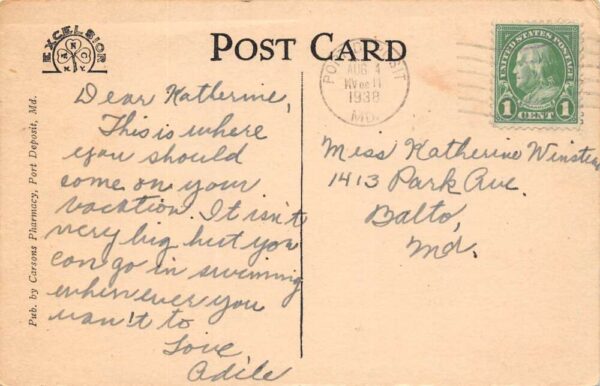 EXCELSIOR
A N C
N.Y.
POST CARD
PORT DEPOSIT
AUG 4
11
1938
MD.
UNITED STATES POSTAGE
FRANKLIN
1 CENT 1
Pub. by Carsons Pharmacy, Port Deposit, Md.
Dear Katherine,
This is where
you should
come on your
vacation. It isn't
very big but you
can go in swimming
whenever you
wan't to
Love
Adile
Miss Katherine
1413 Park Ave.
Balto,
Md.